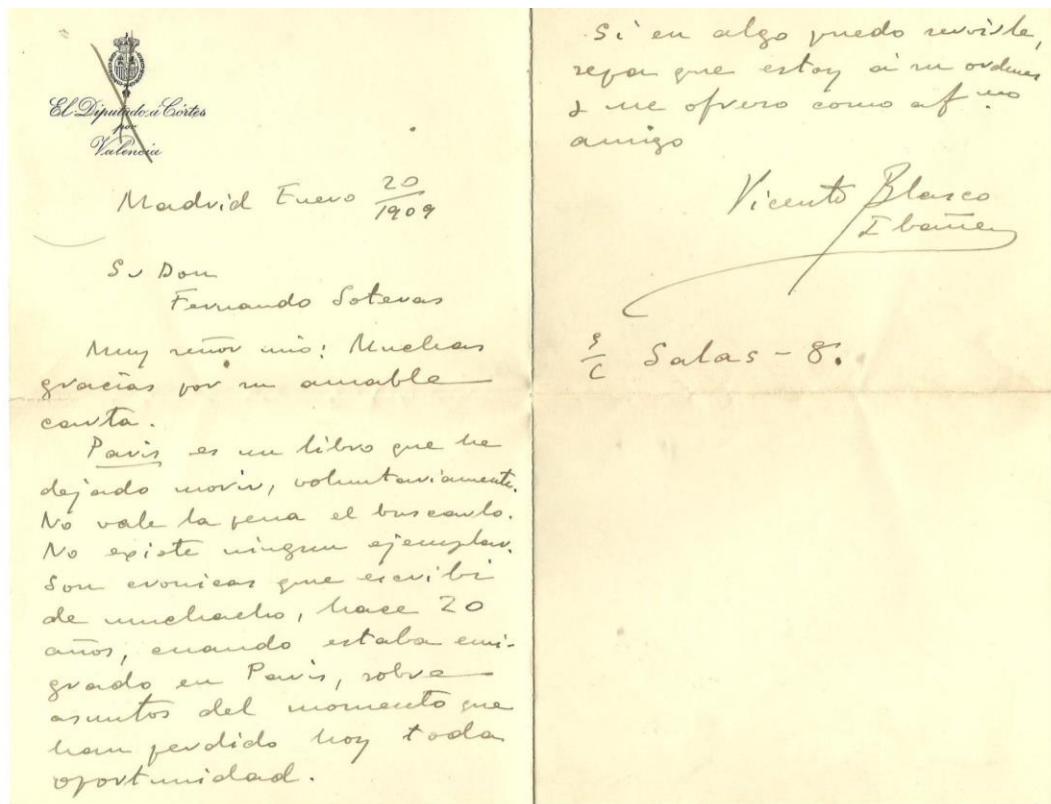 El Diputado á Córtes
por
Valencia
Madrid Enero 20/1909
Sr Don
Fernando Soteras
Muy señor mio: Muchas
gracias por su amable
carta.
Paris es un libro que he
dejado morir, voluntariamente.
No vale la pena el buscarlo.
No existe ningun ejemplar.
Son cronicas que escribi
de muchacho, hace 20
años, cuando estaba emi-
grado en Paris, sobre
asuntos del momento que
han perdido hoy toda
oportunidad.
Si en algo puedo servirle,
sepa que estoy á su ordenes
y me ofrezco como afmo
amigo
Vicente Blasco
Ibañez
s/c Salas - 8.